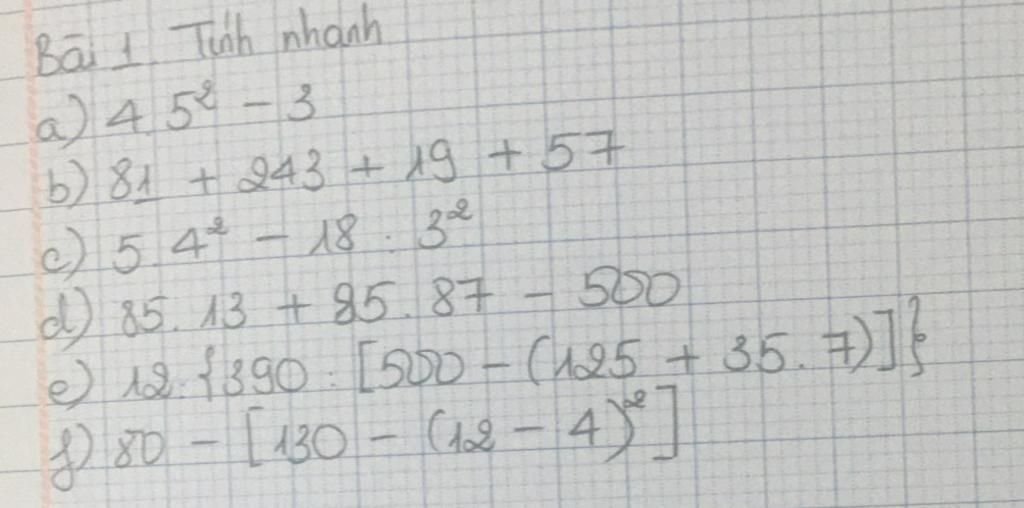 Bài 1 Tính nhanh
a) 4.5² - 3
b) 81 + 243 + 19 + 57
c) 5.4² - 18 : 3²
d) 85.13 + 85.87 - 500
e) 12:{390:[500-(125+35.7)]}
f) 80 - [130 - (12 - 4)²]